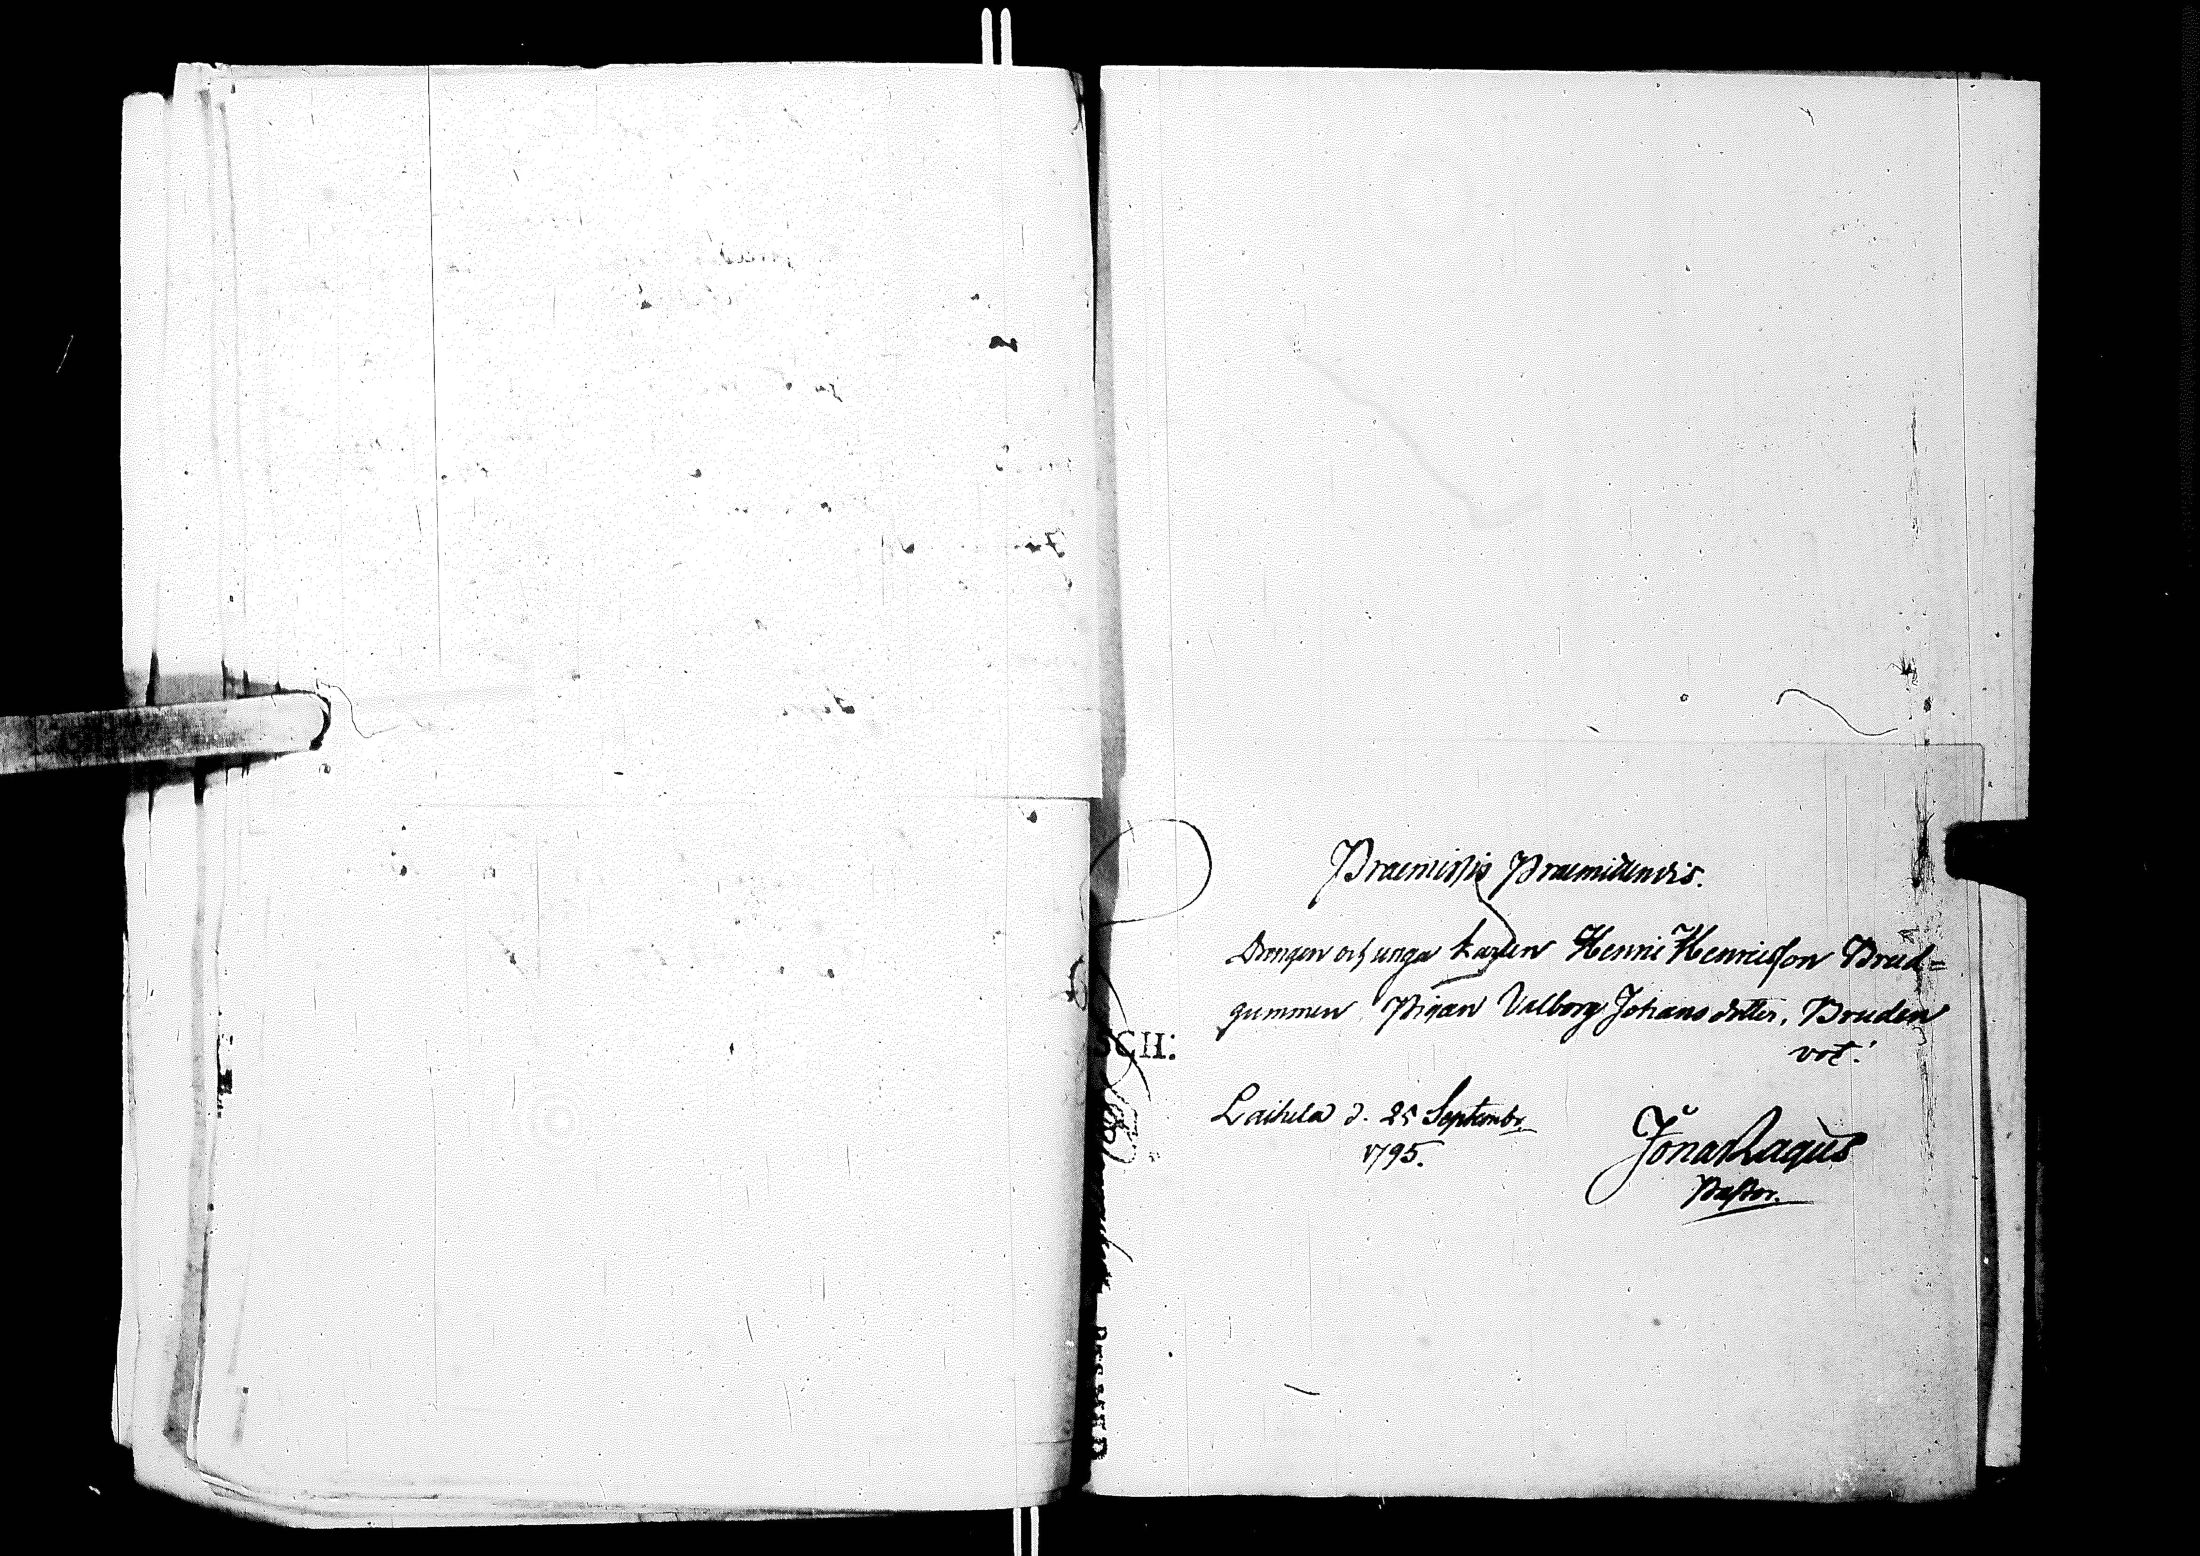 Praemissis Praemittendis.
Drengen och unga karlen Henric Henricsson Brud=
gummen, Pigan Valborg Johans dotter, Bruden
vot:
SCH:
Laihela d. 25 Septembr.
1795.
Jonas Lagus
Pastor.